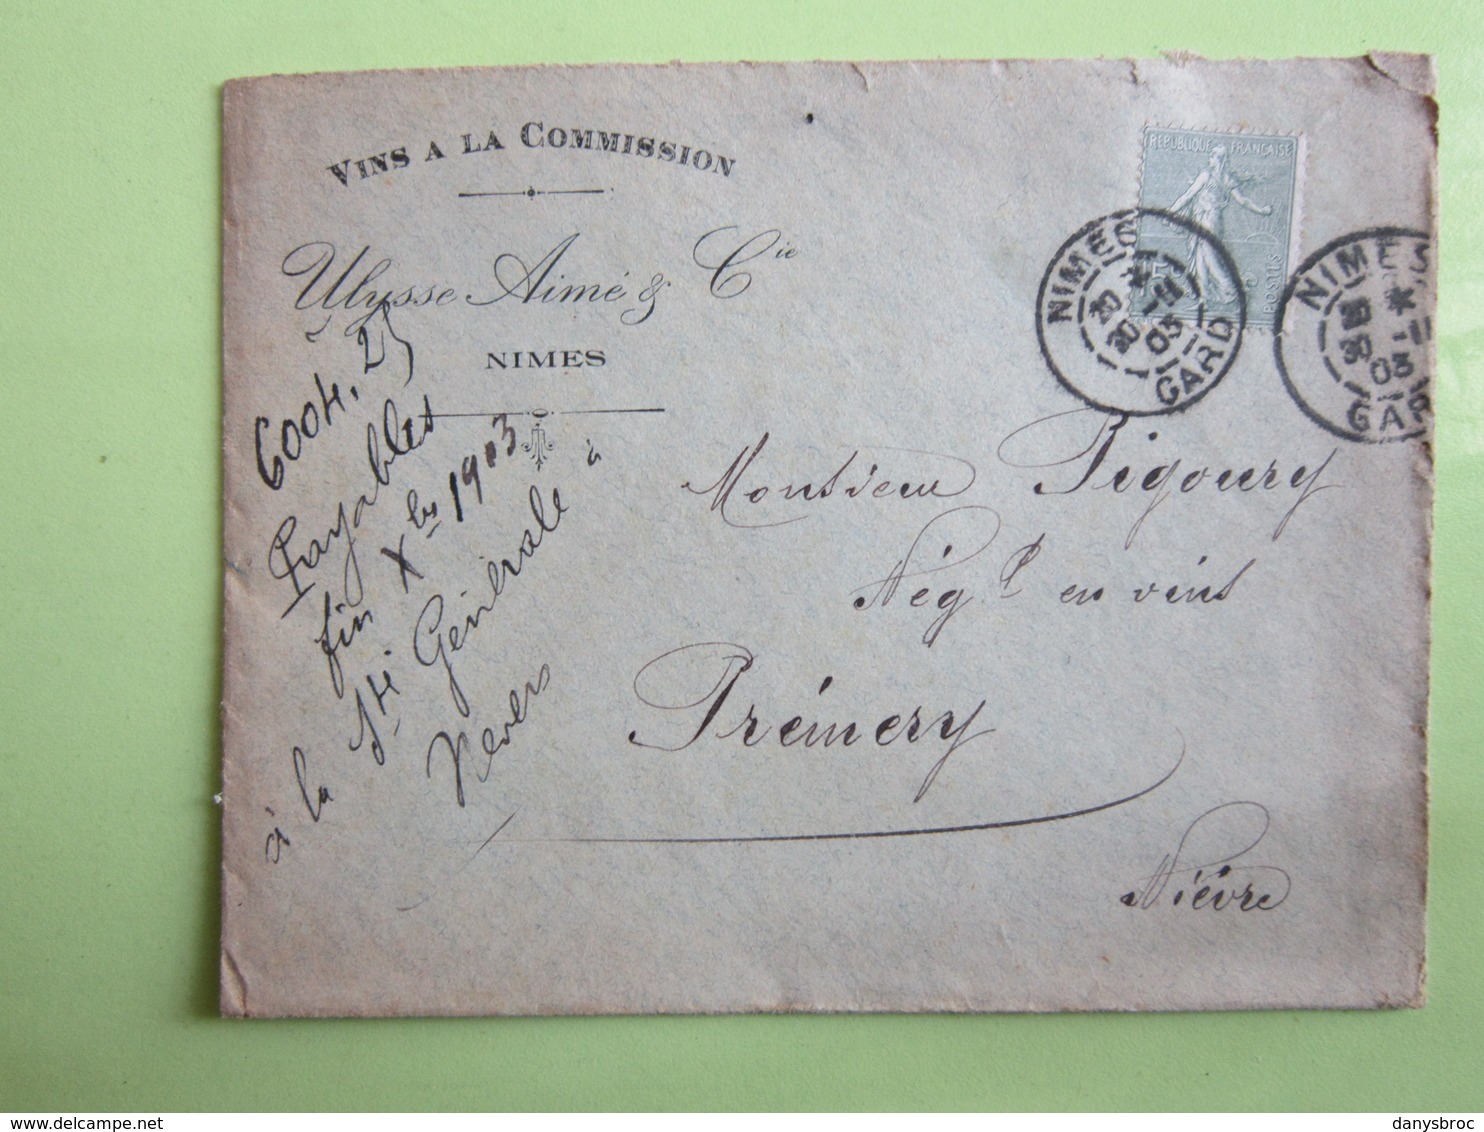 VINS A LA COMMISSION
Ulysse Aimé & Cie
NIMES
REPUBLIQUE FRANÇAISE
POSTES
15
NIMES
20
30 -11
03
GARD
NIMES
30 -11
03
GAR
6004,25
Payables
fin Xbre 1903
à la Sté Générale à
Nevers
Monsieur Pigoury
Négt en vins
Prémery
Nièvre
delcampe.net
danysbroc